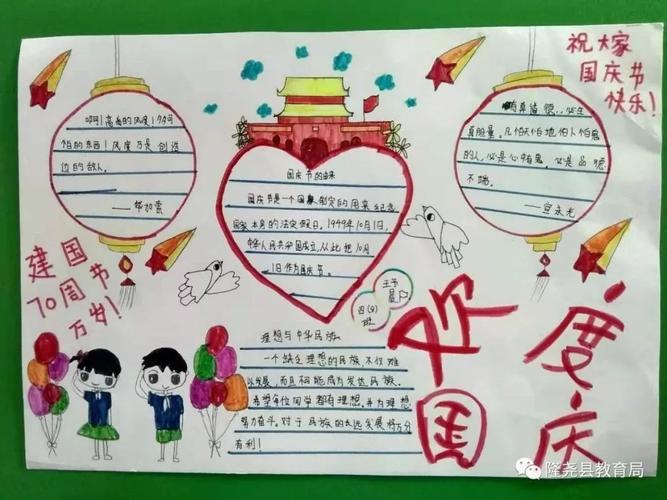 祝大家
国庆节
快乐!
啊!高高的风度!
怕的东西!风度乃是创造
边的敌人。
有真道德,必生
真胆量。凡怕天怕地怕人怕鬼
的人,必是心中有鬼,必是品德
不端。
——宣永光
国庆节的由来
国庆节是一个国家制定的用来纪念
国家本身的法定假日。1949年10月1日,
中华人民共和国成立,从此把10月
1日作为国庆节。
建国
70周节
万岁!
理想与中华民族
一个缺乏理想的民族,不仅难
以发展,而且不能成为发达民族。
希望每位同学都有理想。并为理想
努力奋斗。对于民族的长远发展将万分
有利!
欢度国庆
隆尧县教育局